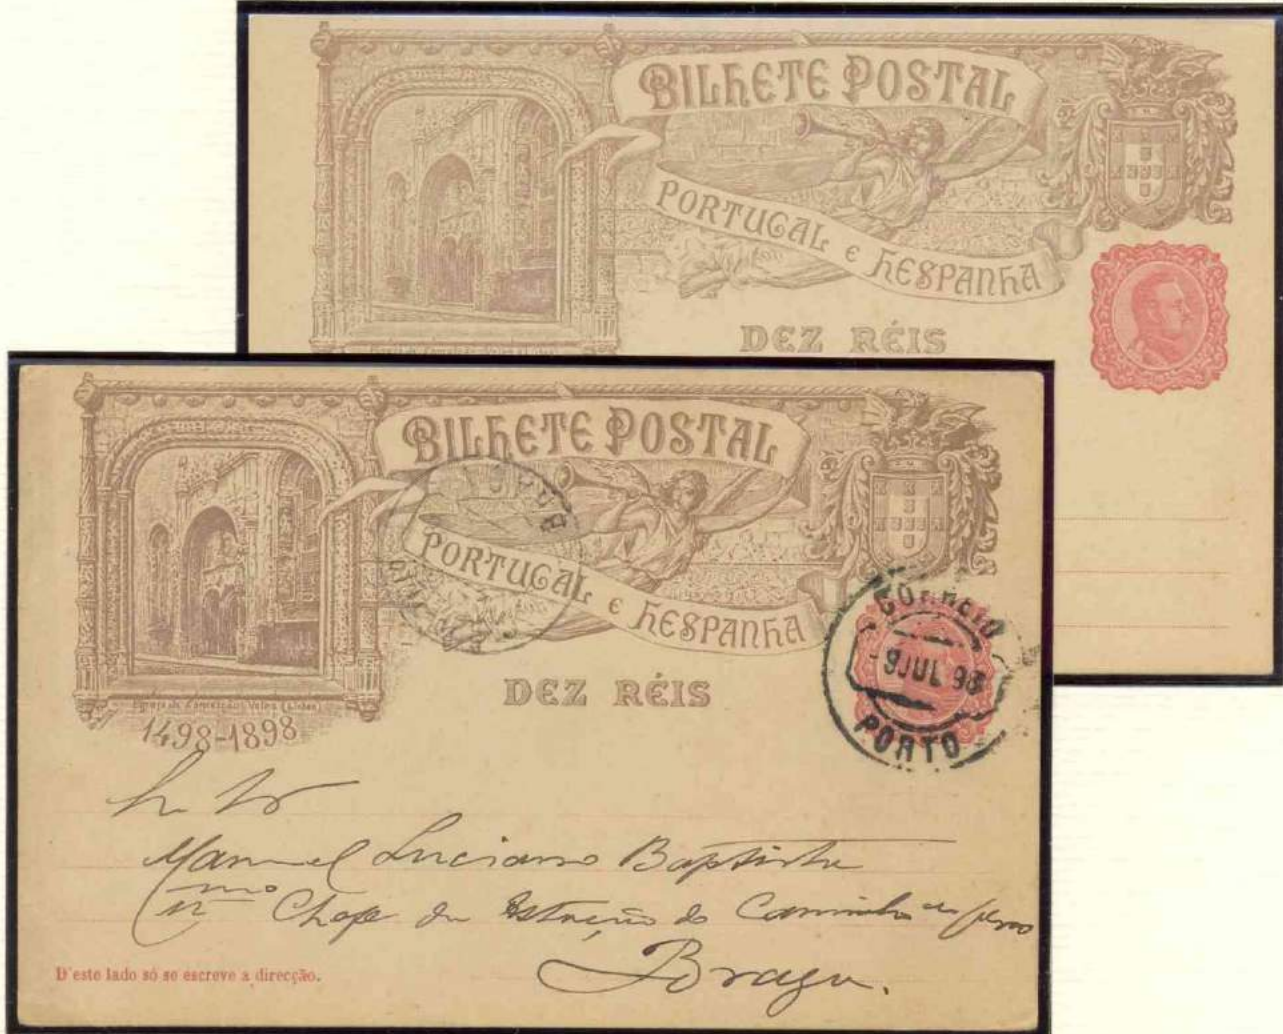 BILHETE POSTAL
PORTUGAL E HESPANHA
DEZ RÉIS
BILHETE POSTAL
PORTUGAL E HESPANHA
DEZ RÉIS
Egreja da Conceição Velha (Lisboa)
1498-1898
CORREIO
9 JUL 98
PORTO
Manuel Luciano Baptista
Chefe da Estação do Caminho de ferro
Braga.
D'este lado só se escreve a direcção.